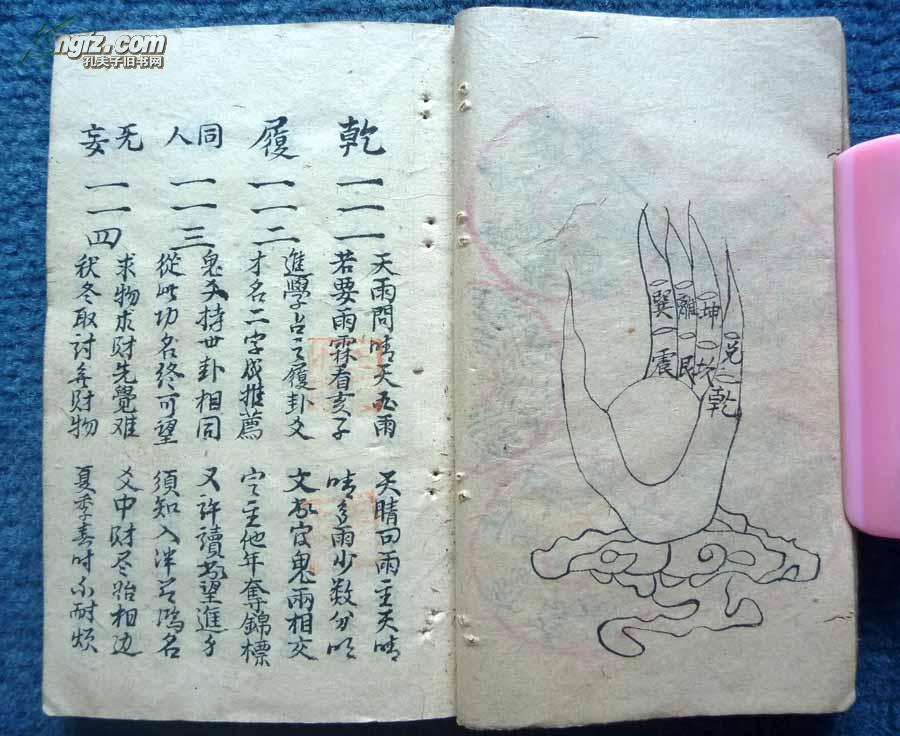 kongfz.com
孔夫子旧书网
乾
一一一
天雨問晴天不雨
天晴问雨主天晴
若要雨霖看亥子
晴多雨少数分明
履
一一二
進學占之履卦爻
文書官鬼兩相交
才名二字成推薦
定主他年奪錦標
同人
一一三
鬼爻持世卦相同
又許讀書望進
從此功名終可望
須知入泮名
无妄
一一四
求物求财先覺难
爻中财尽相边
秋冬取討多财物
夏季春时不耐烦
巽
離
坤
兑
震
艮
坎
乾